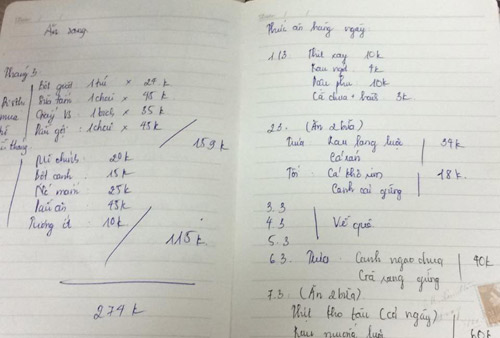 Ăn sang
Tháng 3:
Bột giặt 1 túi × 24k
Sữa tắm 1 chai × 45k
Giấy VS 1 bịch × 35k
Dầu gội : 1 chai × 45k
mua
159k
Mì chính 20k
Bột canh 15k
Nước mắm 25k
Dầu ăn 45k
Tương ớt 10k
115k
274k
Thức ăn hàng ngày
1.3 Thịt xay 10k
Rau ngót 4k
Đậu phụ 10k
Cà chua + hành 3k
2.3. (Ăn 2 bữa)
Trưa Rau lang luộc
Cá rán
34k
Tối : Cá khô rim
Canh cải gừng
18k
3.3
4.3 Về quê
5.3
6.3. Trưa Canh ngao chua
Cà rang gừng
40k
7.3. (Ăn 2 bữa)
Thịt kho tàu (cả ngày)
Rau muống luộc
60k